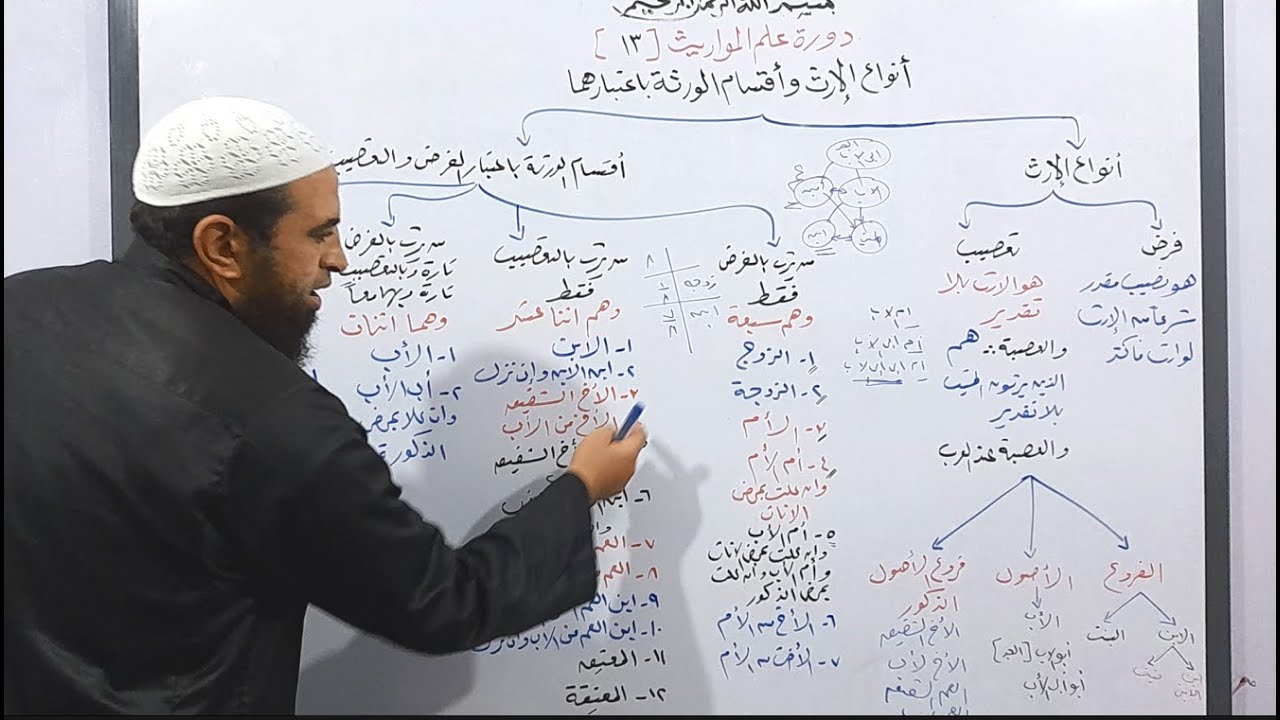 بسم الله الرحمن الرحيم
دورة علم المواريث [١٣]
أنواع الإرث وأقسام الورثة باعتبارهما
أنواع الإرث
فرض
هو نصيب مقدر
شرعاً من الإرث
لوارث فأكثر
تعصيب
هو الإرث بلا
تقدير
والعصبة: هم
الذين يرثون الميت
بلا تقدير
والعصبة عند العرب
الفروع
الابن
البنت
ابن الابن
بنت
الأصول
الأب
أبو الأب [الجد]
أبو أب الأب
فروع الأصول
الذكور
الأخ الشقيق
الأخ لأب
العم الشقيق
أقسام الورثة باعتبار الفرض والتعصيب
من يرث بالفرض
فقط
وهم سبعة
١- الزوج
٢- الزوجة
٣- الأم
٤- أم الأم
وإن علت بمحض
الإناث
٥- أم الأب
وإن علت بمحض الإناث
وأم أب الأب وإن علت
بمحض الذكور
٦- الأخ من الأم
٧- الأخت من الأم
من يرث بالتعصيب
فقط
وهم اثنا عشر
١- الابن
٢- ابن الابن وإن نزل
٣- الأخ الشقيق
الأخ من الأب
الأخ الشقيق
٦- ابن
٧- العم
٨- العم
٩- ابن العم
١٠- ابن العم من الأب وإن نزل
١١- المعتق
١٢- المعتقة
من يرث بالفرض
تارة وبالتعصيب
تارة وبهما معاً
وهما اثنان
١- الأب
٢- أب الأب
وإن علا بمحض
الذكور
٨
زوجة
١
٨
ابن
٧
٨
أم لأب
أم أبي الأب
أم أبي أبي الأب
الأب
ابنه
ابنه